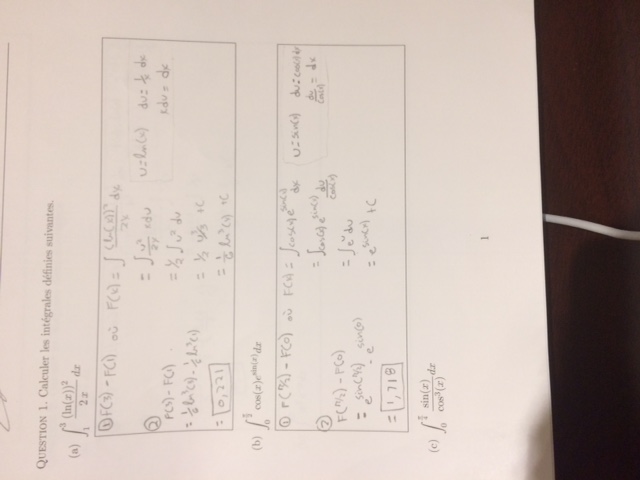 QUESTION 1. Calculer les intégrales définies suivantes.
(a) ∫₁³ (ln(x))² / 2x dx
① F(3) - F(1) où F(x) = ∫ (ln(x))² / 2x dx
= ∫ u² / 2x xdu
= 1/2 ∫ u² du
= 1/2 u³/3 + C
= 1/6 ln³(x) + C
u = ln(x) du = 1/x dx
xdu = dx
② F(3) - F(1)
= 1/6 ln³(3) - 1/6 ln³(1)
= 0,221
(b) ∫₀^(π/2) cos(x)e^(sin(x)) dx
① F(π/2) - F(0) où F(x) = ∫ cos(x) e^(sin(x)) dx
= ∫ cos(x) e^(sin(x)) du/cos(x)
= ∫ e^u du
= e^(sin(x)) + C
u = sin(x) du = cos(x) dx
du/cos(x) = dx
② F(π/2) - F(0)
= e^(sin(π/2)) - e^(sin(0))
= 1,718
(c) sin(x) / cos³(x) dx
1